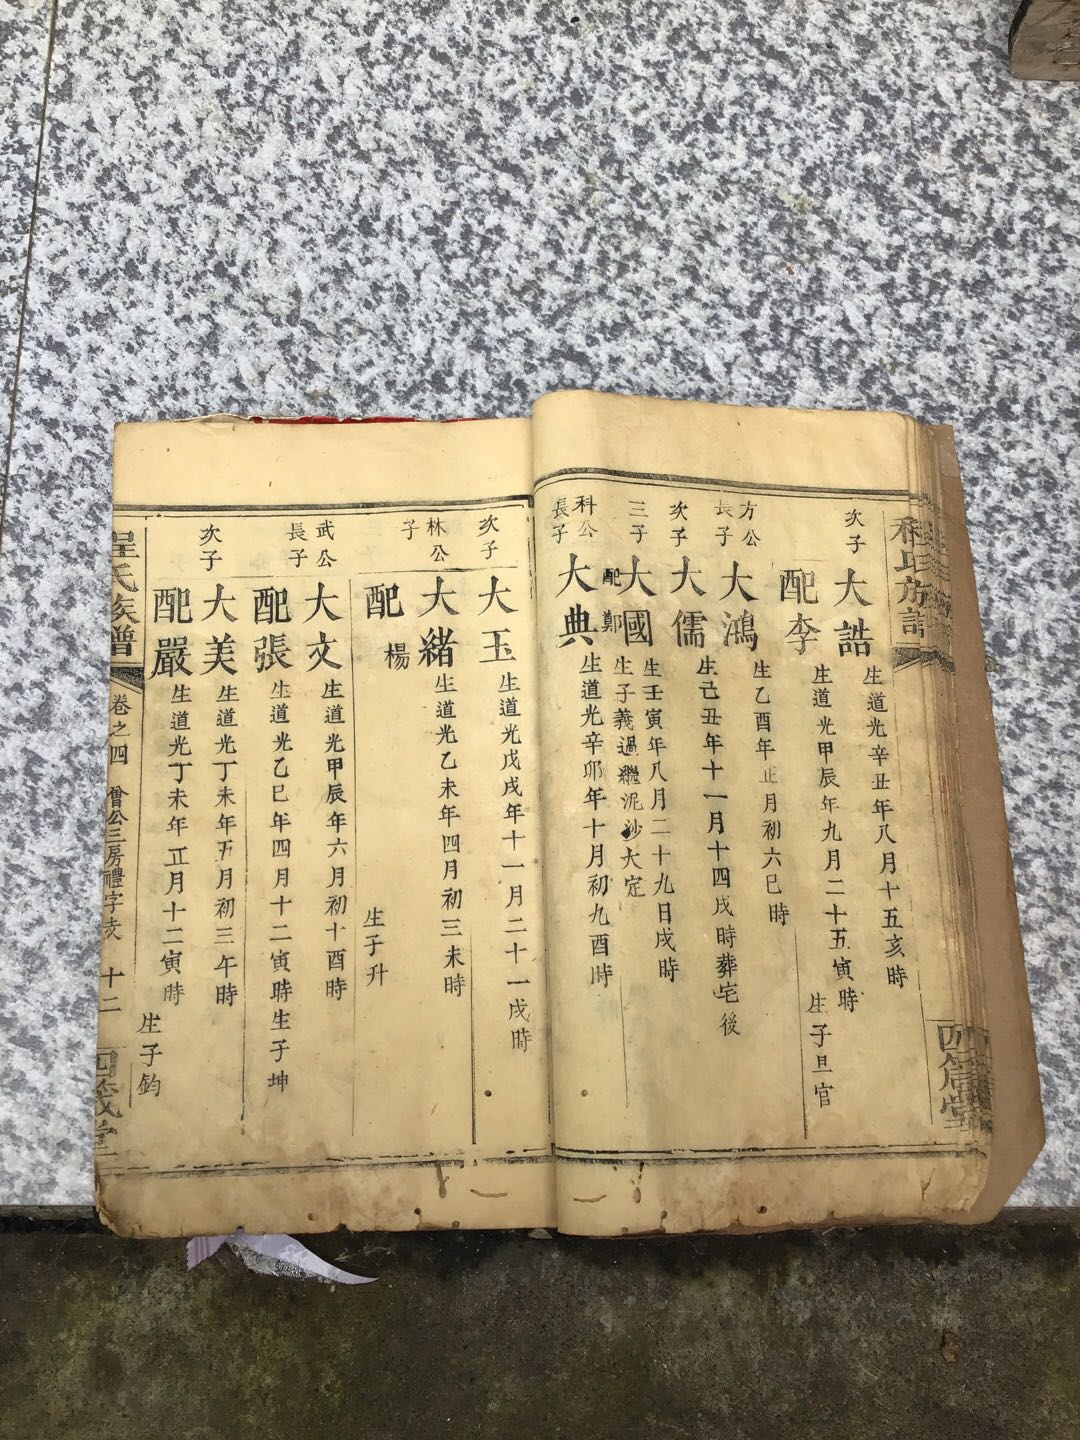 程氏族譜
四箴堂
次子
大誥
生道光辛丑年八月十五亥時
配李
生道光甲辰年九月二十五寅時
生子旦官
方公
長子
大鴻
生乙酉年正月初六巳時
次子
大儒
生己丑年十一月十四戌時葬宅後
三子
大國
生壬寅年八月二十九日戌時
配鄭
生子義過繼泥沙大定
科公
長子
大典
生道光辛卯年十月初九酉時
次子
大玉
生道光戊戌年十一月二十一戌時
林公
子
大緒
生道光乙未年四月初三未時
配楊
生子升
武公
長子
大文
生道光甲辰年六月初十酉時
配張
生道光乙巳年四月十二寅時生子坤
次子
大美
生道光丁未年五月初三午時
配嚴
生道光丁未年正月十二寅時
生子鈞
程氏族譜
卷之四
曾公三房禮字亥
十二
四箴堂